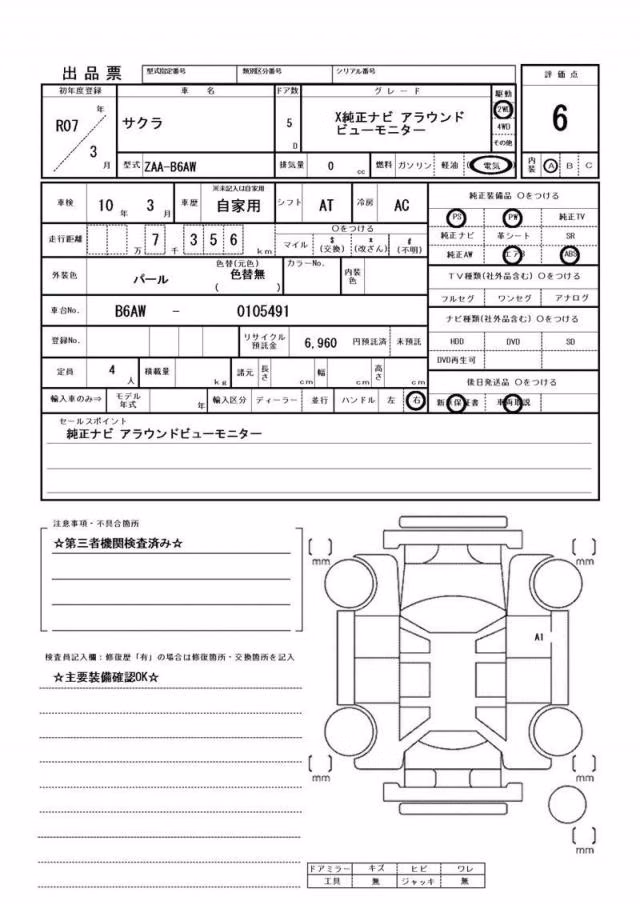 出品票 型式指定番号 類別区分番号 シリアル番号 評価点
初年度登録 車名 ドア数 グレード 駆動
R07 年 3 月 サクラ 5 D X純正ナビ アラウンド 2WD 6
ビューモニター 4WD
その他
型式 ZAA-B6AW 排気量 0 cc 燃料 ガソリン 軽油 (電気) 内装 A B C
車検 10 年 3 月 車歴 ※未記入は自家用 自家用 シフト AT 冷房 AC 純正装備品 ○をつける
PS PW 純正TV
走行距離 万 7 千 3 5 6 km ○をつける
マイル $ (交換) x (改ざん) # (不明) 純正ナビ 革シート SR
純正AW エアB ABS
外装色 パール 色替(元色) 色替無 ( ) カラーNo. 内装色 TV種類(社外品含む) ○をつける
フルセグ ワンセグ アナログ
車台No. B6AW - 0105491 ナビ種類(社外品含む) ○をつける
登録No. リサイクル預託金 6,960 円預託済 未預託 HDD DVD SD
DVD再生可
定員 4 人 積載量 kg 諸元 長さ cm 幅 cm 高さ cm 後日発送品 ○をつける
輸入車のみ⇒ モデル年式 年 輸入区分 ディーラー 並行 ハンドル 左 右 新車保証書 車両取説
セールスポイント
純正ナビ アラウンドビューモニター
注意事項・不具合箇所
☆第三者機関検査済み☆
[ ] mm [ ] mm
A1
検査員記入欄:修復歴「有」の場合は修復箇所・交換箇所を記入
☆主要装備確認OK☆
[ ] mm [ ] mm
[ ] mm
ドアミラー キズ ヒビ ワレ
工具 無 ジャッキ 無